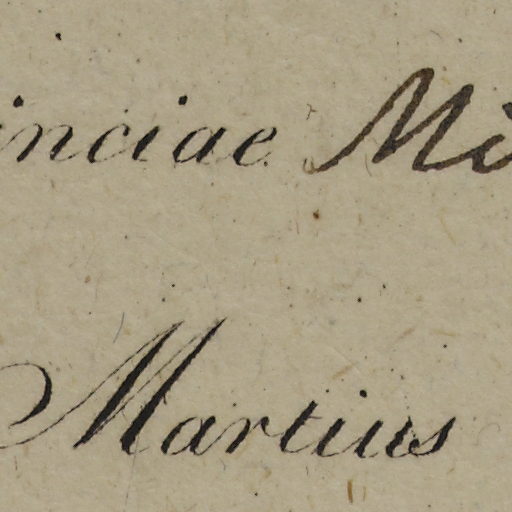 inciae Mi
Martius